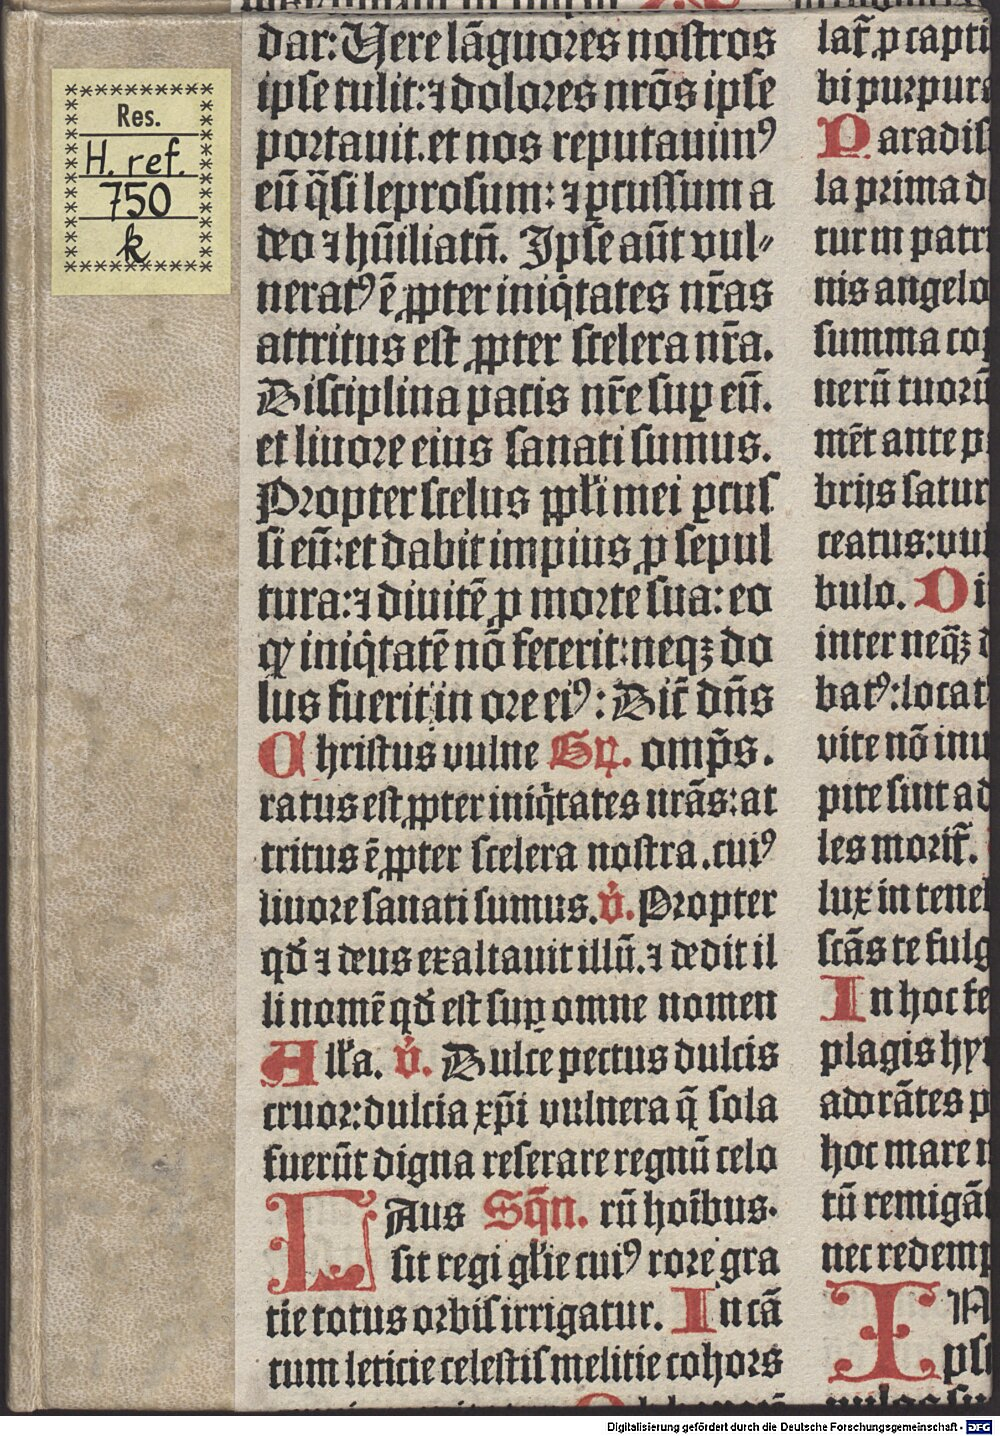 Res.
H. ref.
750
k
dar: Vere lāguores nostros
ipse tulit: ⁊ dolores nrōs ipse
portauit. et nos reputauimꝰ
eū q̄si leprosum: ⁊ ꝑcussum a
deo ⁊ hūiliatū. Ipse aūt vul⸗
neratꝰ ē ꝓpter iniqͥtates nr̄as
attritus est ꝓpter scelera nr̄a.
Disciplina pacis nr̄e suꝑ eū.
et liuore eius sanati sumus.
Propter scelus ppl̄i mei ꝑcus
si eū: et dabit impius ꝓ sepul
tura: ⁊ diuitē ꝓ morte sua: eo
ꝙ iniqͥtatē nō fecerit: neqꝫ do
lus fuerit in ore eiꝰ: Dic̄ dn̄s
Christus vulne Gꝶ. omp̄s.
ratus est ꝓpter iniqͥtates nrās: at
tritus ē ꝓpter scelera nostra. cuiꝰ
liuore sanati sumus. v̓. Propter
qd̓ ⁊ deus exaltauit illū. ⁊ dedit il
li nomē qd̓ est suꝑ omne nomen
Alla. v̓. Dulce pectus dulcis
cruor: dulcia xp̄i vulnera q̄ sola
fuerūt digna reserare regnū celo
LAus Sq̄n. rū hoībus.
sit regi gl̄ie cuiꝰ rore gra
tie totus orbis irrigatur. In cā
tum leticie celestis melitie cohors
lat̄ ꝓ capti
bi purpura
Paradis
la prima d
tur in patri
nis angelo
summa cop
nerū tuorū
mēt ante p
brijs satur
ceatus: vul
bulo. Di
inter neq̄ꝫ d
batꝰ: locat
vite nō inu
pite sint ad
les morit̄.
lux in tene
scās te fulg
In hoc fe
plagis hym
adorātes p
hoc mare n
tū remigāt
nec redemp
IN
ps
Digitalisierung gefördert durch die Deutsche Forschungsgemeinschaft - DFG